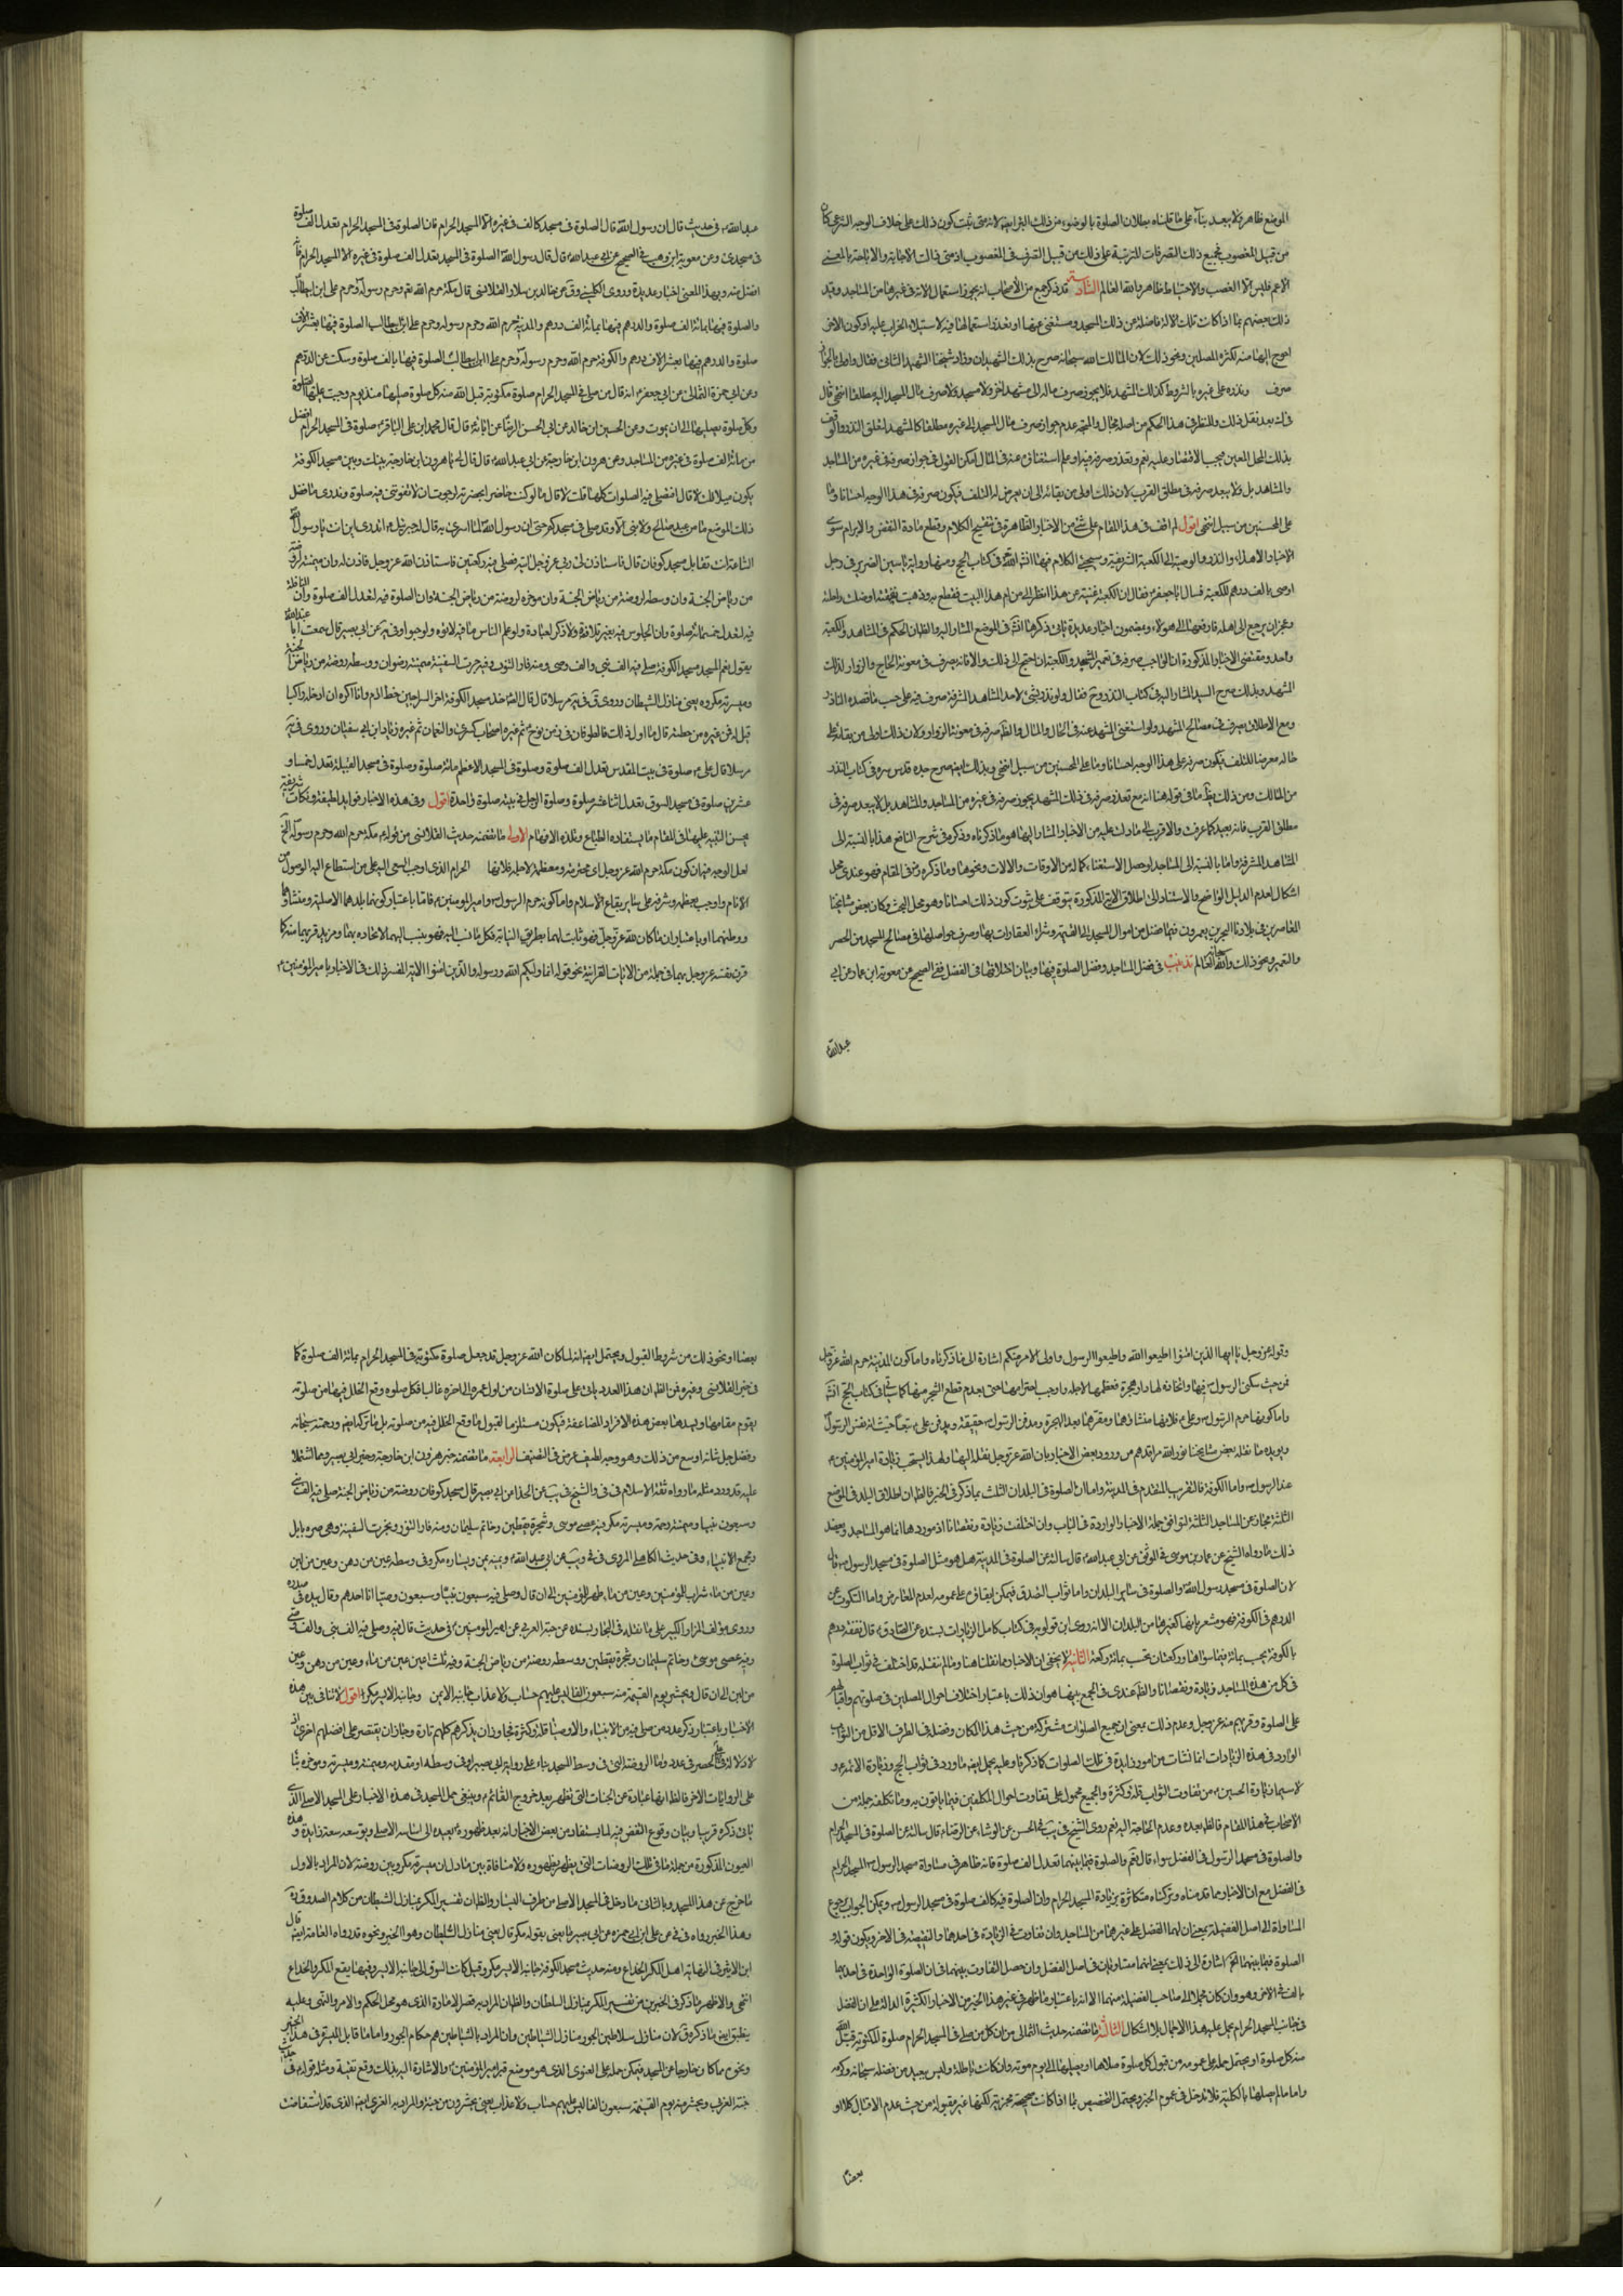 الموضع ظاهر ولا يبعد بناء على ما قلناه بطلان الصلوة بالوضوء من ذلك لانه متى ثبت كون ذلك على خلاف الوجه الشرعي كان
من قبيل المغصوب فجميع ذلك التصرفات المترتبة على ذلك من قبيل التصرف في المغصوب
الاعم فليس الا الغصب والاحتياط ظاهر والله العالم السادسة قد ذكر جمع من الأصحاب انه يجوز استعمال الاته في غيرها من المساجد وقيد
ذلك بعضهم بما اذا كانت تلك الالة فاضلة عن ذلك المسجد ومستغنى عنها او تعذر استعمالها فيه لاستيلاء الخراب عليه او كون الاخر
احوج اليها منه لكثرة المصلين ونحو ذلك لان المالك لله سبحانه صرح بذلك الشهيدان وزاد شيخنا الشهيد الثاني فقال
صرف ونذره على غيره بالشروط كذلك المشهد فلا يجوز صرف ماله الى مشهد اخر ولا مسجد ولا صرف مال المسجد اليه مطلقا انتهى قال
في ك بعد نقل ذلك وللنظر في هذا الحكم من اصله مجال والمتجه عدم جواز صرف مال المسجد الى غيره مطلقا كالمشهد لتعلق النذر والوقف
بذلك المحل المعين فيجب الاقتصار عليه نعم لو تعذر صرفه فيه او علم استغناؤه عنه في المال امكن القول في جواز صرفه في غيره من المساجد
والمشاهد بل ولا يبعد صرفه في مطلق القرب لان ذلك اولى من بقائه الى ان يعرض له التلف فيكون صرفه في هذا الوجه احسانا وما
على المحسنين من سبيل انتهى اقول لم اقف في هذا المقام على شئ من الاخبار الظاهرة في تنقيح الكلام وقطع مادة النقض والابرام سوى
الاخبار الاهداء والنذر والوصية الى الكعبة الشريفة وسيجئ الكلام فيها انشاء الله في كتاب الحج ومنها رواية ياسين الضرير في رجل
اوصى بالف درهم للكعبة فسال ابا جعفر فقال ان الكعبة غنية عن هذا انظر الى من ام هذا البيت فقطع به او ذهبت نفقته او ضلت راحلته
وعجز ان يرجع الى اهله فادفعها الى هؤلاء ومضمون اخبار عديدة ياتي ذكرها في الموضع المشار اليه والظاهر ان الحكم في المشاهد والكعبة
واحد ومقتضى الاخبار المذكورة ان الواجب صرفه في تعمير المشهد والكعبة ان احتيج الى ذلك والا فانه يصرف في معونة الحاج والزوار لذلك
المشهد وبذلك صرح السيد المشار اليه في كتاب النذر فقال ولو نذر شئ لاحد المشاهد المشرفة صرف فيه على حسب ما قصده الناذر
ومع الاطلاق يصرف في مصالح المشهد ولو استغنى المشهد عنه في الحال والمال فالظاهر صرفه في معونة الزوار ولان ذلك اولى من بقائه على
حاله معرضا للتلف فيكون صرفه على هذا الوجه احسانا وما على المحسنين من سبيل انتهى وبذلك ايضه صرح جده قدس سره في كتاب النذر
من المسالك ومن ذلك يظهر ما في قوله هنا انه مع تعذر صرفه في ذلك المشهد يجوز صرفه في غيره من المساجد والمشاهد بل لا يبعد صرفه في
مطلق القرب فانه بعيد كما عرفت والاقرب الى ما دلت عليه من الاخبار المشار اليها هو ما ذكرناه وذكره في شرح النافع هذا بالنسبة الى
المشاهد المشرفة واما بالنسبة الى المساجد لو حصل الاستغناء كما له من الاوقات والالات ونحوها وما ذكره في المقام فهو عندي محل
اشكال لعدم الدليل الواضح والاستناد الى اطلاق الاية المذكورة يتوقف على ثبوت كون ذلك احسانا وهو محل البحث وكان بعض مشايخنا
المعاصرين في بلادنا البحرين يعمرون فيما فضل من اموال المسجد وشراء العقارات بها وصرف حواصلها في مصالح المسجد من الحصر
والتعمير ونحو ذلك والله العالم تذنيب في فضل المساجد وفضل الصلوة فيها وبيان اختلافها في الفضل ففي الصحيح عن معوية ابن عمار عن ابي
عبد الله
عبد الله في حديث قال ان رسول الله قال الصلوة في مسجدي كالف في غيره الا المسجد الحرام فان الصلوة في المسجد الحرام تعدل الف صلوة
في مسجدي وعن معوية ابن وهب في الصحيح عن ابي عبد الله قال قال رسول الله الصلوة في المسجد تعدل الف صلوة في غيره الا المسجد الحرام فانه
افضل منه وبهذا المعنى اخبار عديدة وروى الكليني عن خالد بن ماد القلانسي قال مكة حرم الله وحرم رسوله وحرم علي ابن ابيطالب
والصلوة فيها بمائة الف صلوة والدرهم فيها بمائة الف درهم والمدينة حرم الله وحرم رسوله وحرم علي ابن ابيطالب الصلوة فيها بعشرة الاف
صلوة والدرهم فيها بعشرة الاف درهم والكوفة حرم الله وحرم رسوله وحرم علي ابن ابيطالب الصلوة فيها بالف صلوة وسكت عن الدرهم
وعن ابي حمزة الثمالي عن ابي جعفر انه قال من صلى في المسجد الحرام صلوة مكتوبة قبل الله منه كل صلوة صليها منذ يوم وجبت عليه الصلوة
وكل صلوة يصليها الى ان يموت وعن الحسين ابن خالد عن ابي الحسن الرضا عن ابائه قال قال محمد ابن علي الباقر صلوة في المسجد الحرام افضل
من مائة الف صلوة في غيره من المساجد وعن هرون ابن خارجة عن ابي عبد الله قال قال لي يا هرون ابن خارجة بينك وبين مسجد الكوفة
يكون ميلا قلت لا قال افتصلي فيه الصلوات كلها قلت لا قال اما لو كنت حاضرا بحضرته لرجوت ان لا تفوتني فيه صلوة وتدري ما فضل
ذلك الموضع ما من عبد صالح ولا نبي الا وقد صلى في مسجد كوفان حتى ان رسول الله لما اسرى به قال له جبرئيل اتدري اين انت يا رسول الله
الساعة انت مقابل مسجد كوفان قال فاستاذن لي ربي عز وجل اتيه فصلى فيه ركعتين فاستاذن الله عز وجل فاذن له وان ميمنته لروضة
من رياض الجنة وان وسطه لروضة من رياض الجنة وان مؤخره لروضة من رياض الجنة وان الصلوة فيه لتعدل الف صلوة وان النافلة
فيه لتعدل خمسمائة صلوة وان الجلوس فيه بغير تلاوة ولا ذكر لعبادة ولو علم الناس ما فيه لاتوه ولو حبوا وفي يه عن ابي بصير قال سمعت ابا عبد الله
يقول نعم المسجد مسجد الكوفة صلى فيه الف نبي والف وصي ومنه فار التنور وفيه جرت السفينة ميمنته رضوان ووسطه روضة من رياض الجنة
وميسرته مكر وهو يعني منازل الشيطان وروى في يه مرسلا قال قال الصادق حد مسجد الكوفة اخر السراجين خطه ادم وانا اكره ان ادخله راكبا
قيل له فمن غيره عن خطته قال اما اول ذلك فالطوفان في زمن نوح ثم غيره اصحاب كسرى والنعمان ثم غيره زياد ابن ابي سفيان وروى في يه
مرسلا قال علي صلوة في بيت المقدس تعدل الف صلوة وصلوة في المسجد الاعظم مائة صلوة وصلوة في مسجد القبيلة تعدل خمسا و
عشرين صلوة في مسجد السوق تعدل اثنا عشر صلوة وصلوة الرجل في بيته صلوة واحدة اقول وفي هذه الاخبار فوايد لطيفة ونكات شريفة
يحسن التنبيه عليها في المقام الاولى ما تضمنه حديث القلانسي من قوله مكة حرم الله وحرم رسوله الخ
لعل الوجه فيه ان كون مكة حرم الله عز وجل اي محترمه ومعظمه لاجله فلانها الحرام الذي اوجب السعي اليه على من استطاع اليه الوصول من
الانام واوجب تعظيمه وشرفه على سائر بقاع الاسلام واما كونه حرم الرسول وامير المؤمنين فاما باعتبار كونها بلدهما الاصلية ومنشأهما
ووطنهما او باعتبار ان ما كان لله عز وجل فهو ثابت لهما بطريق النيابة فكل ما نسب اليه فهو ينسب اليهما لاتحاده بهما ومزيد قربهما منه كما
قرن نفسه عز وجل بهما في جملة من الايات القرانية نحو قوله انما وليكم الله ورسوله والذين امنوا الاية المفسر ذلك في الاخبار بامير المؤمنين
وقوله عز وجل يا ايها الذين امنوا اطيعوا الله واطيعوا الرسول واولي الامر منكم اشارة الى ما ذكرناه واما كون المدينة حرم الله عز وجل
فمن حيث سكنى الرسول فيها واتخاذه لها دار هجرة فعظمها لاجله واوجب احترامها حتى بعدم قطع الشجر منها كما سياتي في كتاب الحج
واما كونها حرم الرسول وعلي فلانها منشأهما ومقرهما بعد الهجرة ومدفن الرسول حقيقة ومدفن علي تبعا حيث انه نفس الرسول
ويؤيده ما نقله بعض مشايخنا نور الله مراقدهم من ورود بعض الاخبار بان الله عز وجل نقله اليها ولهذا يستحب زيارة امير المؤمنين
عند الرسول واما الكوفة فالتقريب المتقدم في المدينة واما ان الصلوة في البلدان الثلث بما ذكر في الخبر فالظاهر ان اطلاق البلد في المواضع
الثلثة مجاز عن المساجد الثلثة لتوافق جملة الاخبار الواردة في الباب وان اختلفت زيادة ونقصانا اذ موردها انما هو المساجد ويعضد
ذلك ما رواه الشيخ عن عمار بن موسى في الموثق عن ابي عبد الله قال سالته عن الصلوة في المدينة هل هو مثل الصلوة في مسجد الرسول قال
لا ان الصلوة في مسجد رسول الله والصلوة في سائر البلدان واما ثواب التصدق فيمكن ابقاؤه على عمومه لعدم المعارض واما السكوت عن
الدرهم في الكوفة فهو مشعر بانها كغيرها من البلدان الا انه روى ابن قولويه في كتاب كامل الزيارات بسنده عن الصادق قال نفقة درهم
بالكوفة يحسب بمائة فيما سواها وركعتان تحسب بمائة ركعة الثانية لا يخفى ان الاخبار مما نقلنا هنا ومما لم ننقله قد اختلفت في ثواب الصلوة
في كل من هذه المساجد زيادة ونقصانا والظاهر عندي في الجمع بينها هو ان ذلك باعتبار اختلاف احوال المصلين في صلوتهم واقبالهم
على الصلوة وقربهم منه عز وجل وعدم ذلك بمعنى ان جميع الصلوات مشتركة من حيث هذا المكان وفضله في الطرف الاقل من الثواب
الوارد في هذه الزيادات انما نشات من امور زايدة في تلك الصلوات كما ذكرنا وعليه يحمل ايضه ما ورد في ثواب الحج وزيارة الائمه و
لا سيما زيارة الحسين من تفاوت الثواب قلة وكثرة والجميع محمول على تفاوت احوال المكلفين فيما ياتون به وما تكلفه جملة من
الاصحاب في هذا المقام فالظاهر بعده وعدم الحاجة اليه نعم روى الشيخ في يب في الحسن عن الوشاء عن الرضا قال سالته عن الصلوة في المسجد الحرام
والصلوة في مسجد الرسول في الفضل سواء قال نعم والصلوة فيما بينهما تعدل الف صلوة فانه ظاهر في مساواة مسجد الرسول المسجد الحرام
في الفضل مع ان الاخبار مما قدمناه وتركناه متكاثرة بزيادة المسجد الحرام وان الصلوة فيه كالف صلوة في مسجد الرسول ويمكن الجواب برجوع
المساواة الى اصل الفضيلة بمعنى ان لهما الفضل على غيرهما من المساجد وان تفاوت في الزيادة في احدهما والنقيصة في الاخر ويكون قوله و
الصلوة فيما بينهما الخ اشارة الى ذلك بمعنى انهما متساويان في اصل الفضل وان حصل التفاوت بينهما في ان الصلوة الواحدة في احدهما
بالف في الاخر وهو وان كان مجملا في صاحب الفضيلة منهما الا انه باعتبار ما ظهر في غير هذا الخبر من الاخبار الكثيرة الدالة على ان الفضل
في جانب المسجد الحرام يحمل عليه هذا الاجمال بلا اشكال الثالثة ما تضمنه حديث الثمالي من ان كل من صلى في المسجد الحرام صلوة المكتوبة قبل الله
منه كل صلوة او يحتمل حمله على عمومه من قبول كل صلوة صلاها او يصليها الى يوم موته وان كانت باطلة وليس ببعيد من فضله سبحانه وكرمه
واما ما لم يصلها بالكلية فلا تدخل في عموم الخبر ويحتمل التخصيص بما اذا كانت صحيحة مجزية لكنها غير مقبولة من حيث عدم الاقبال كلا او
بعضا
بعضا او نحو ذلك من شروط القبول ويحتمل ايضه انه لما كان الله عز وجل قد جعل صلوة مكتوبة في المسجد الحرام بمائة الف صلوة كما
في خبر القلانسي وغيره فمن الظاهر ان هذا العدد ياتي على صلوة الانسان من اول عمره الى اخره غالبا فكل صلوة وقع الخلل فيها من صلوته
يقوم مقامها ويسدها بعض هذه الافراد المضاعفة فيكون مستلزما لقبول ما وقع الخلل فيه من صلوته بل ما تركه ايضه ورحمته سبحانه
وفضل جل شانه اوسع من ذلك وهو وجه لطيف عرض في التصنيف الرابعة ما تضمنه خبر هرون ابن خارجة وخبر ابي بصير وما اشتملا
عليه قد ورد مثله ما رواه ثقة الاسلام في في والشيخ في يب عن ابي بصير قال مسجد كوفان روضة من رياض الجنة صلى فيه الف نبي
وسبعون نبيا وميمنته رحمة وميسرته مكر وفيه عصى موسى وشجرة يقطين وخاتم سليمان ومنه فار التنور ونجرت السفينة وهي صرة بابل
ومجمع الانبياء وفي حديث الكاهلي المروي في في ويب عن ابي عبد الله ويمينه يمن ويساره مكر وفي وسطه عين من دهن وعين من لبن
وعين من ماء شراب للمؤمنين وعين من ماء طهر للمؤمنين الى ان قال وصلى فيه سبعون نبيا وسبعون وصيا انا احدهم وقال بيده في صدره
وروى مؤلف المزار الكبير على ما نقله في البحار بسنده عن حبة العرني عن امير المؤمنين في حديث قال فيه وصلى فيه الف نبي والف وصي
وفيه عصى موسى وخاتم سليمان وشجرة يقطين ووسطه روضة من رياض الجنة وفيه ثلث اعين عين من ماء وعين من دهن وعين
من لبن الى ان قال ويحشر يوم القيمة منه سبعون الفا ليس عليهم حساب ولا عذاب جانبه الايمن وجانبه الايسر مكر اقول لا تنافي بين هذه
الاخبار باعتبار ذكر عدد من صلى فيه من الانبياء والاوصياء قلة وكثرة لجواز ان يذكرهم كلهم تارة وجاز ان يقتصر على افضلهم اخرى اذ
لا دلالة على الحصر في عدد واما الروضة التي في وسط المسجد بناء على رواية ابي بصير او في وسطه او مقدمه وميمنته وميسرته ومؤخره بناء
على الروايات الاخر فالظاهر انها عبارة عن الجنات التي تظهر بعد خروج القائم وينبغي حمل المسجد في هذه الاخبار على المسجد الاصلي الذي
ياتي ذكره قريبا وبيان وقوع النقض فيه لما يستفاد من بعض الاخبار انه بعد ظهوره يعيده الى اساسه الاصلي ويوسعه سعة زايدة وهذه
العيون المذكورة من جملة ما في تلك الروضات التي يظهر بظهوره ولا منافاة بين ما دل ان ميسرته مكر وبين روضة لان المراد بالاول
ما خرج عن هذا المسجد وبالثاني ما دخل في المسجد الاصلي من طرف اليسار والظاهر ان تفسير المكر بمنازل الشيطان من كلام الصدوق
وهذا الخبر رواه في في عن علي ابن ابي حمزة عن ابي بصير ما يعني بقوله مكر قال يعني منازل السلطان وهو الخبر ونحوه قد رواه العامة ايضه قال
ابن الاثير في النهاية اصل المكر الخداع ومنه حديث مسجد الكوفة جانبه الايسر مكر وقيل كانت السوق الى جانبه الايسر وفيها يقع المكر والخداع
انتهى والاظهر ما ذكر في الخبرين من تفسير المكر بمنازل السلطان والظاهر ان المراد به قصر الامارة الذي هو محل الحكم والامر والنهي وعليه
ينطبق ايضه ما ذكره لان منازل سلاطين الجور منازل الشياطين وان المراد بالشياطين هم حكام الجور واما ما قابل الميسرة في هذا الخبر
ونحوه مما كان خارجا عن المسجد فيمكن حمله على المعنوي الذي هو موضع قبر امير المؤمنين والاشارة اليه بذلك وقع تقية ومثله قوله في حديث
حبة العرني ويحشر منه يوم القيمة سبعون الفا ليس عليهم حساب ولا عذاب يعني يحشرون من جنبه والمراد به الغري ايضه الذي قد استفاضت